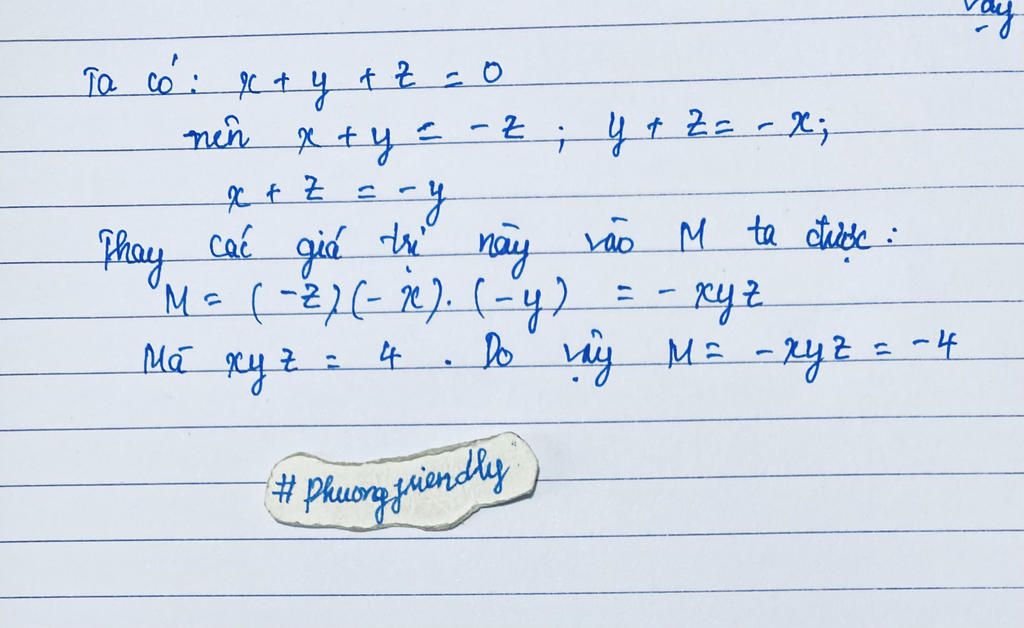 vậy
Ta có: x + y + z = 0
nên x + y = -z ; y + z = - x;
x + z = - y
Thay các giá trị này vào M ta được :
M = (-z)(-x).(-y) = - xyz
Mà xyz = 4 . Do vậy M = - xyz = -4
# Phuongfriendly